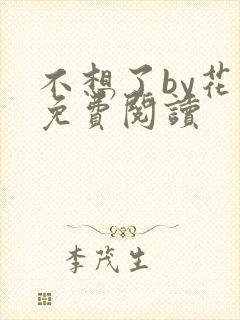 不想了by花
免費閱讀
李茂生